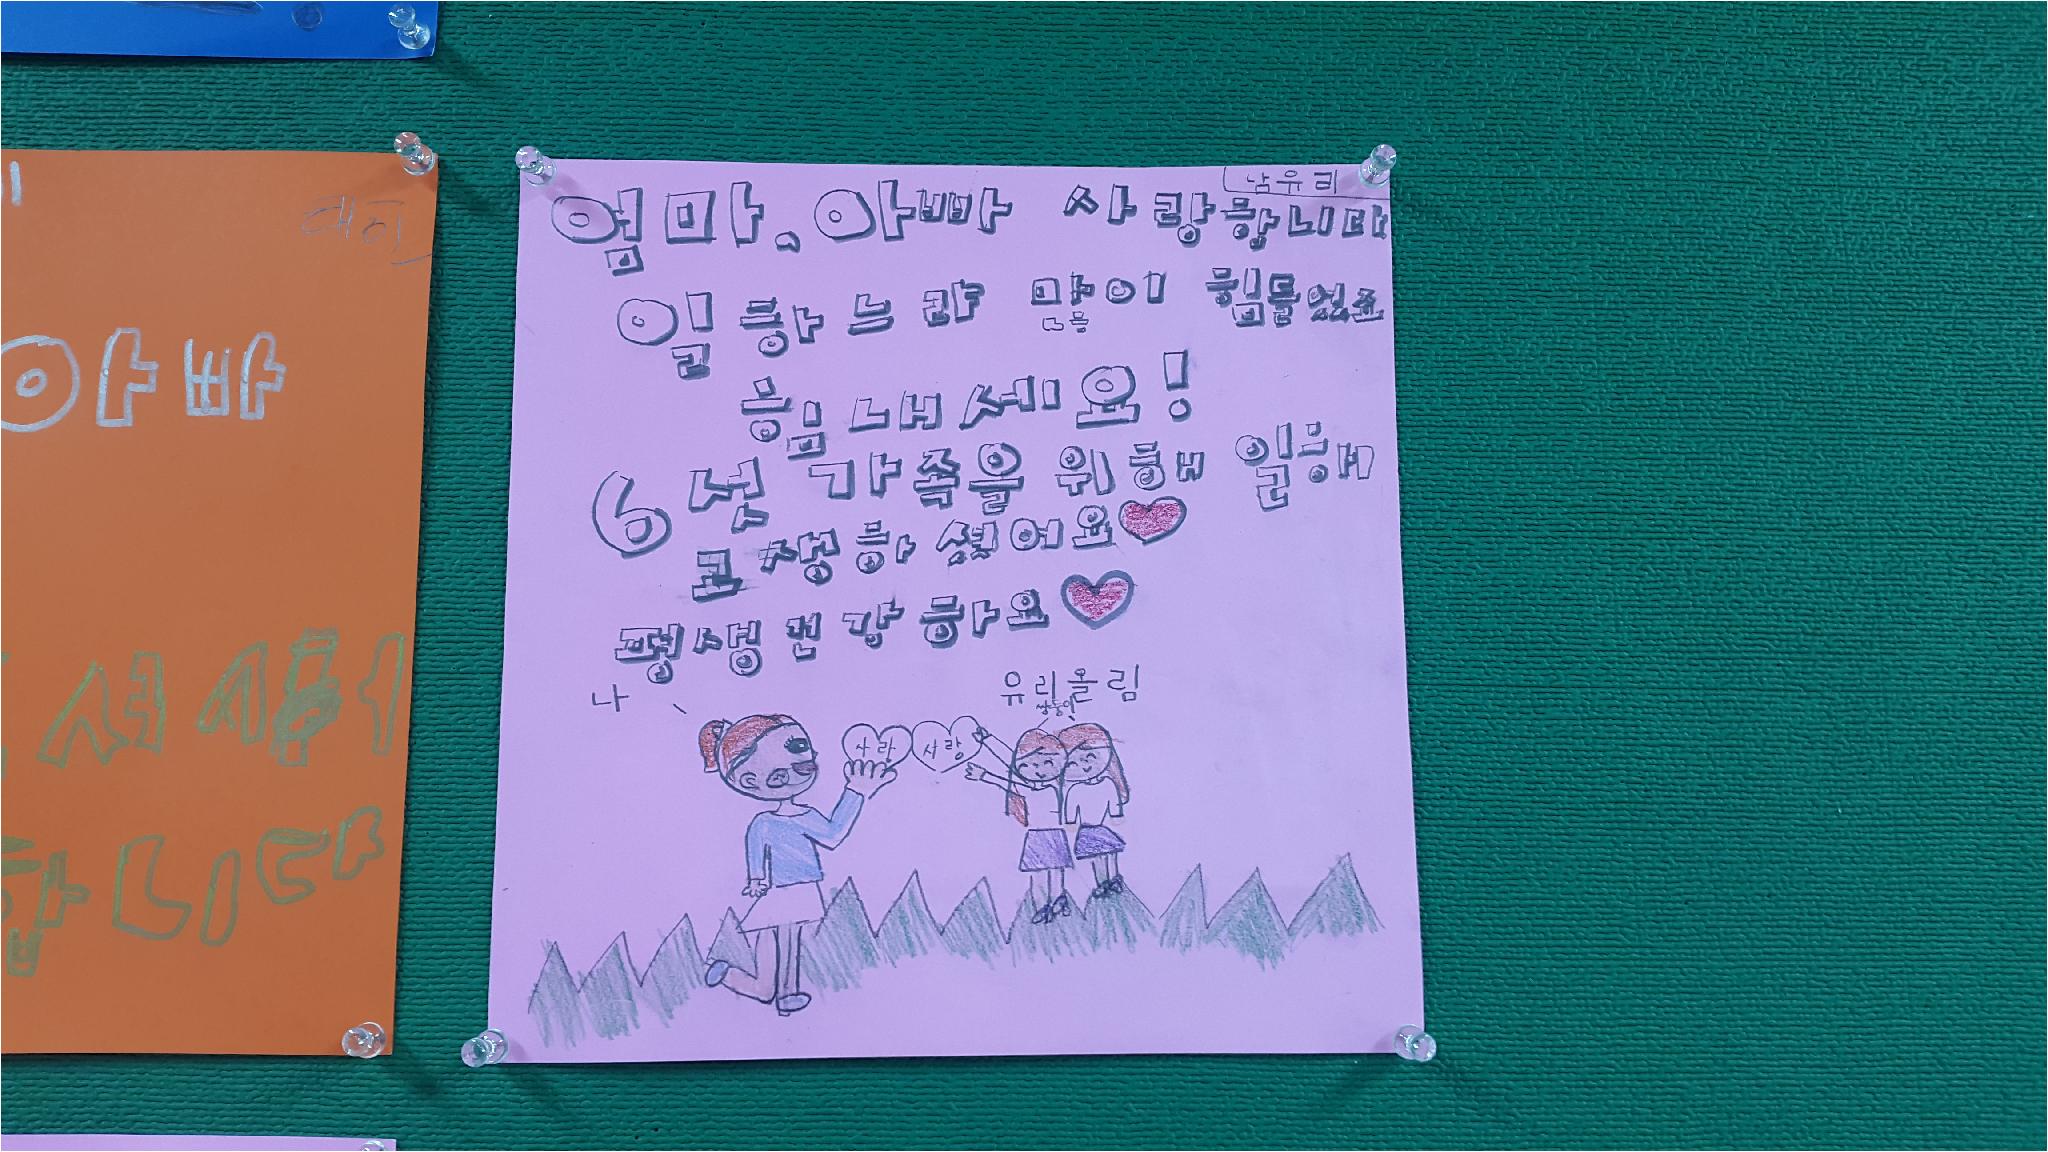 대진
아빠
합니다
남유리
엄마, 아빠 사랑합니다
일하느랴 많이 힘들었죠
힘내세요!
6섯 가족을 위해 일해
고생하셨어요
평생 건강하요
나
유리올림
쌍둥이
사랑 사랑